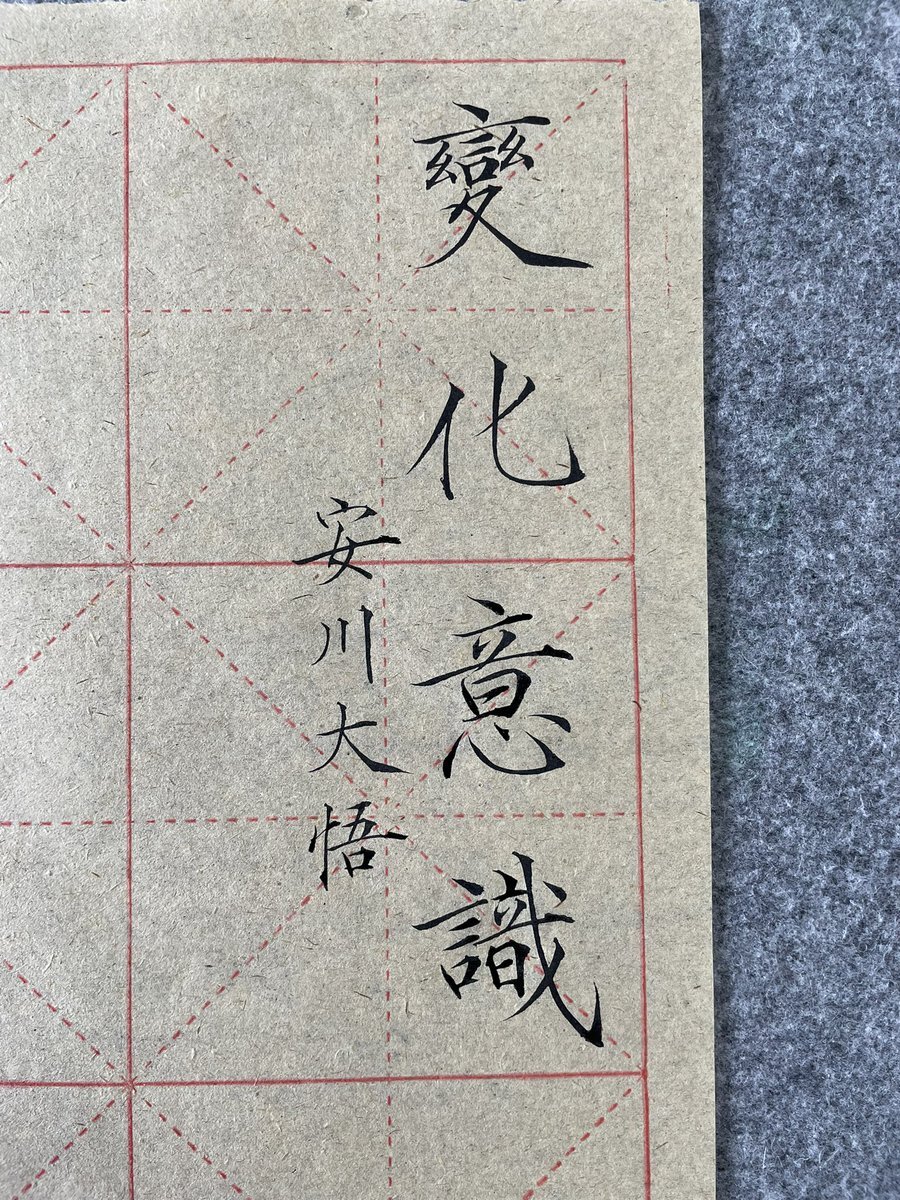 變化意識
安川大悟